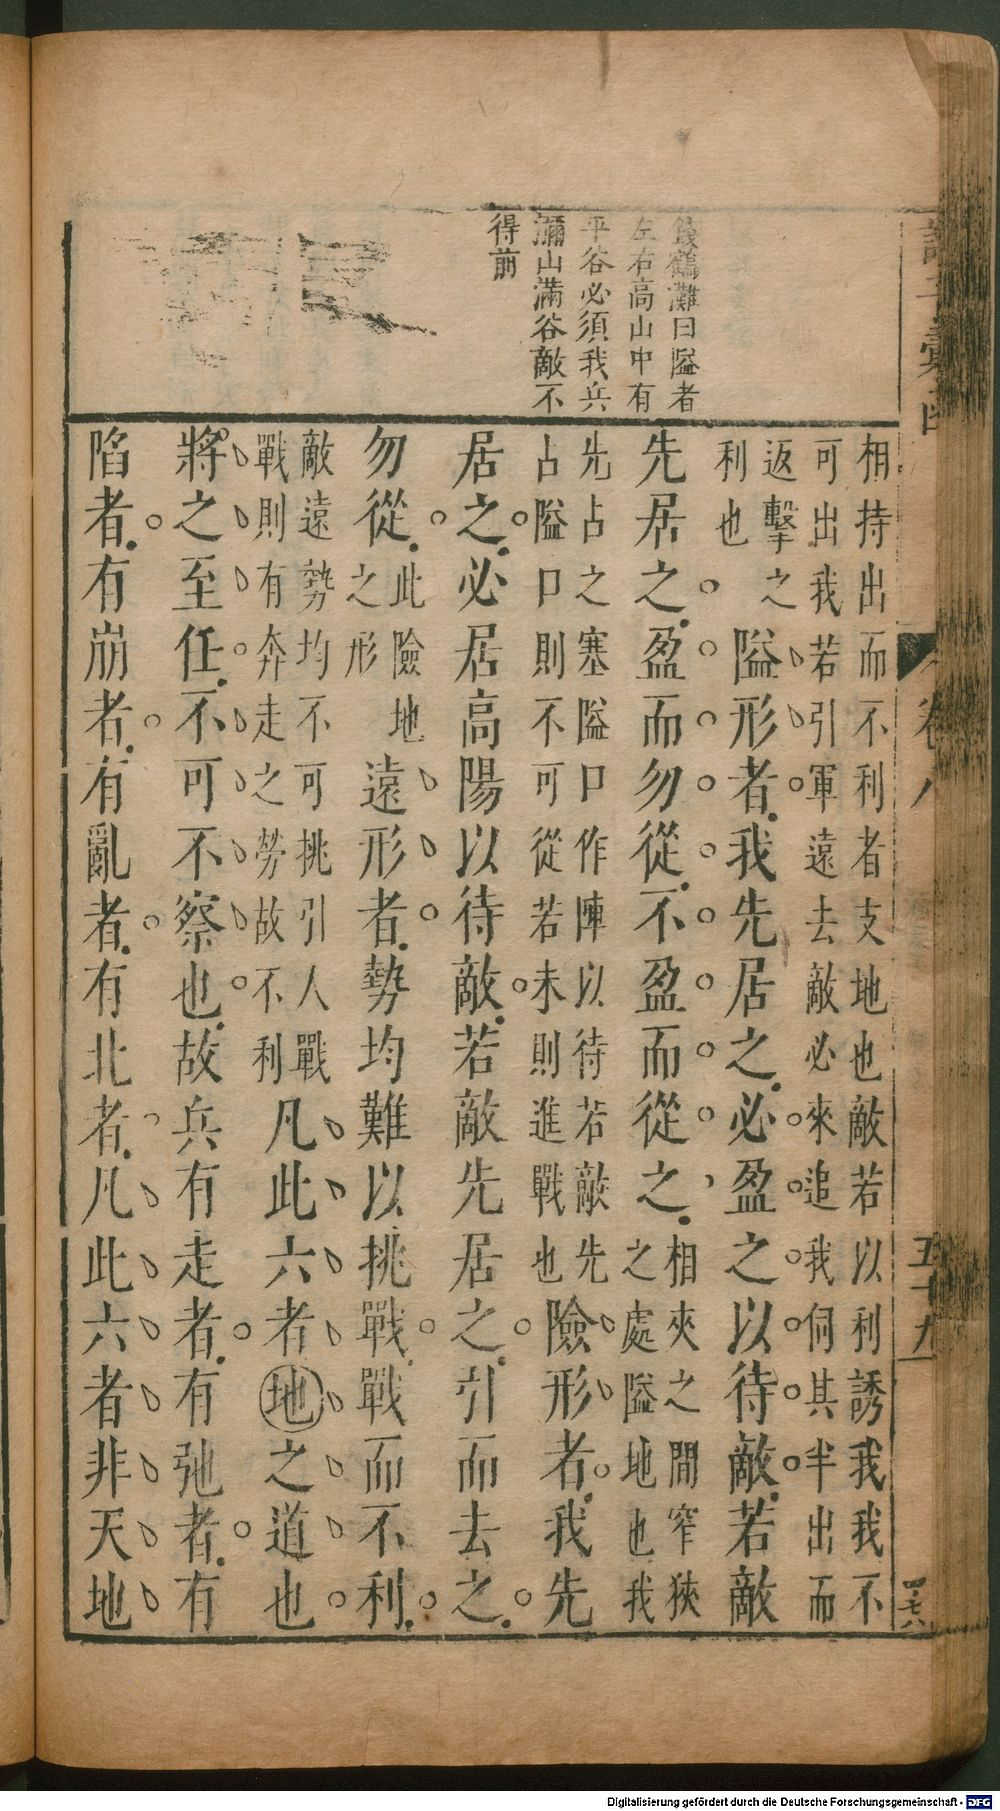 彙函
卷八
五十九
錢鶴灘曰隘者
左右高山中有
平谷必須我兵
瀰山滿谷敵不
得前
相持出而不利者支地也敵若以利誘我我不
可出我若引軍遠去敵必來追我伺其半出而
返擊之
利也
隘形者我先居之必盈之以待敵若敵
先居之盈而勿從不盈而從之
相夾之間窄狹
之處隘地也我
先占之塞隘口作陣以待若敵先
占隘口則不可從若未則進戰也
險形者我先
居之必居高陽以待敵若敵先居之引而去之
勿從
此險地
之形
遠形者勢均難以挑戰戰而不利
敵遠勢均不可挑引人戰
戰則有奔走之勞故不利
凡此六者地之道也
將之至任不可不察也故兵有走者有弛者有
陷者有崩者有亂者有北者凡此六者非天地
Digitalisierung gefördert durch die Deutsche Forschungsgemeinschaft - DFG